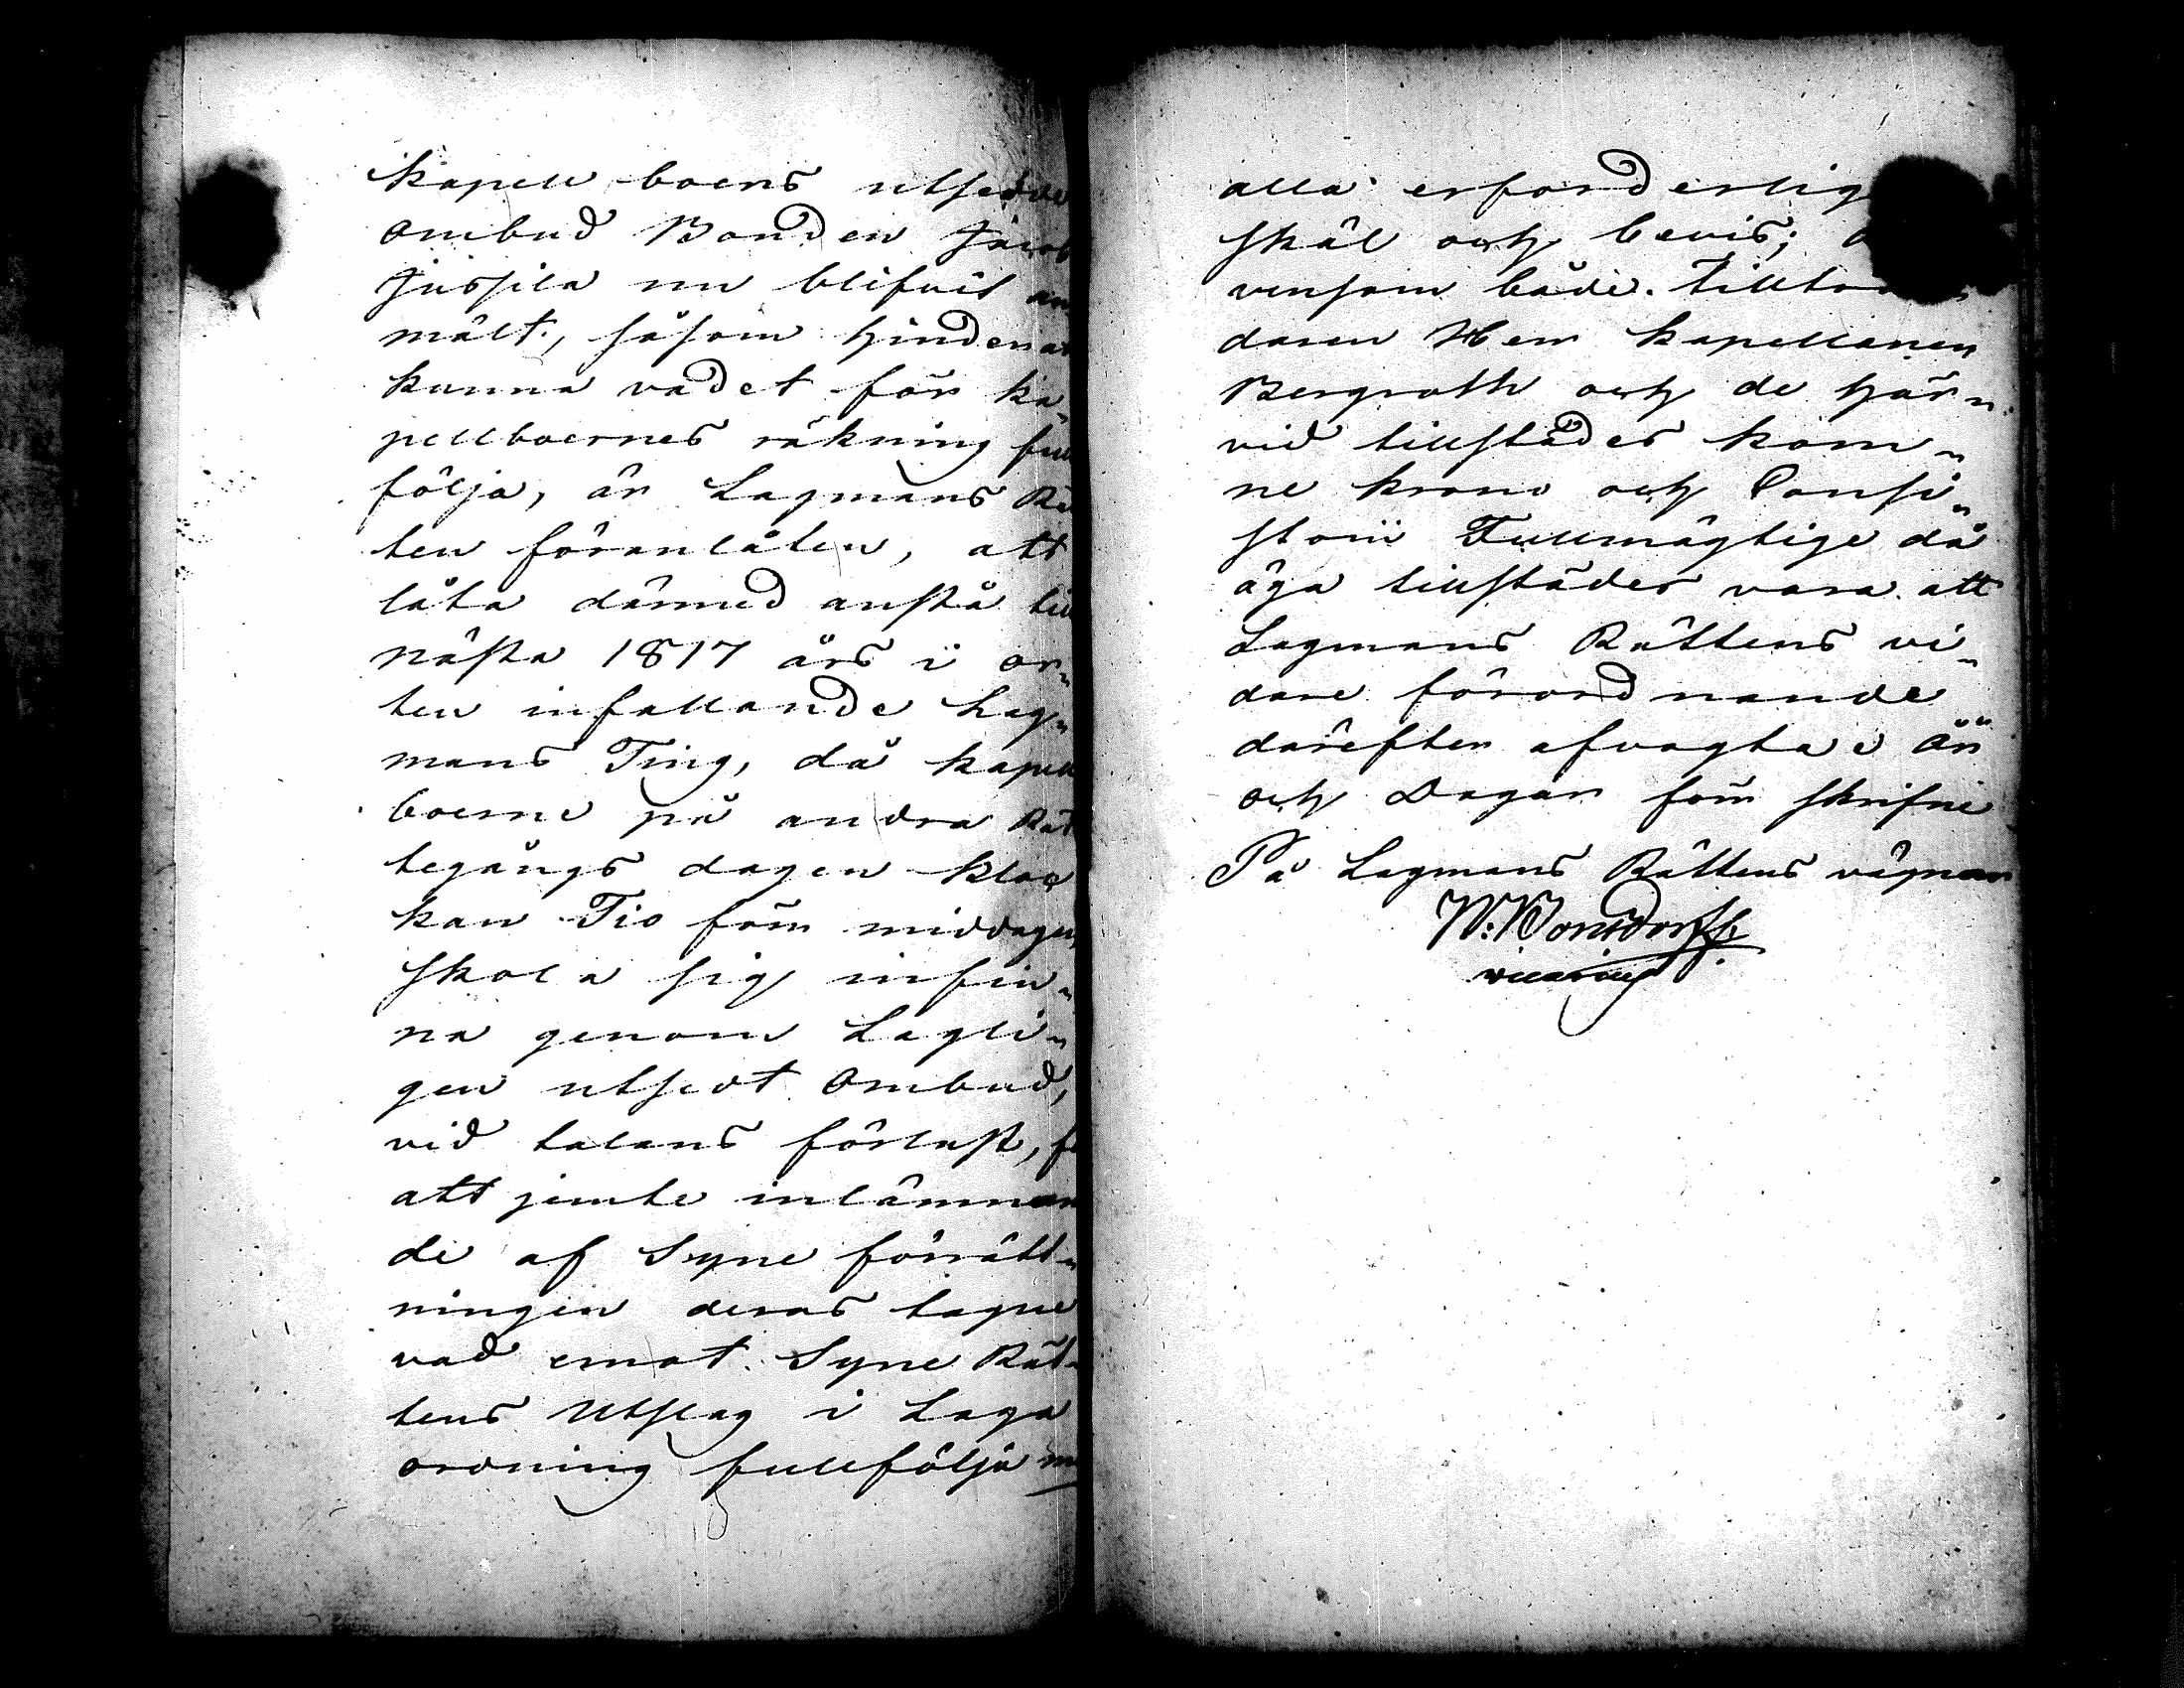 Kapell boens utsedde
Ombud Bonden Jacob
Jussila nu blifvit an
mält, såsom hinder at
kunna vadet för Ka„
pellboernes räkning full
följa, är Lagmans Rä
ten föranlåten, att
låta därmed anstå till
nästa 1817 års i or„
ten infallande Lag„
mans Ting, då Kapell
boerne på andra Rät
tegångs dagen Kloc
kan Tio förm middagen,
skola sig infin„
na genom Lagli„
gen utsedt Ombud,
vid talans förlust, f
att jemte inlämnan
de af Syne förrätt„
ningen deras tagne
vad emot Syne Rät„
tens Utslag i Laga
ordning fullfölja m
alla erforderlig
skäl och bevis;
vensom både Tilltr
daren Herr Kapellanen
Bergroth och de här„
vid tillstädes kom„
ne Krono och Consi„
storii Fullmägtige då
äga tillstädes vara att
Lagmans Rättens vi„
dare förordnande
därefter afvagta. År
och Dagar förr skrifne
På Lagmans Rättens vägnar